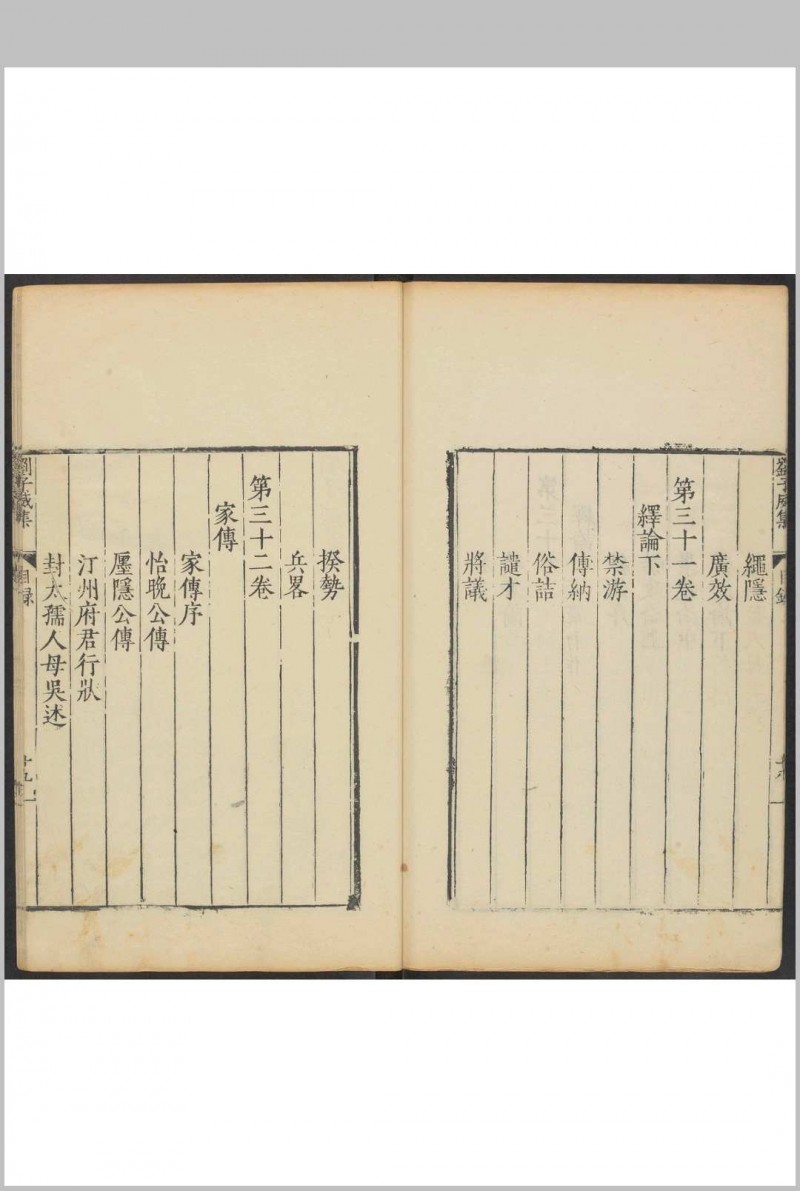 劉子威集
目錄
繩隱
廣效
第三十一卷
繹論下
禁游
傳納
俗詰
譴才
將議
揆勢
兵畧
第三十二卷
家傳
家傳序
怡晚公傳
廛隱公傳
汀州府君行狀
封太孺人母吳述
劉子威集
目錄
十九